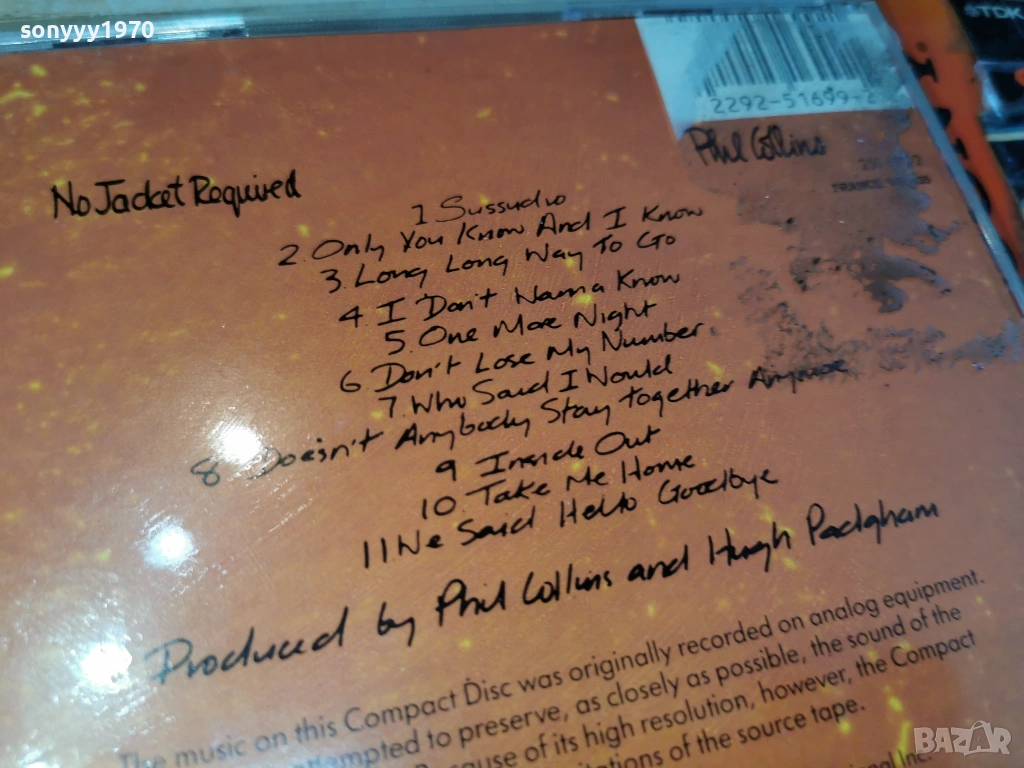 sonyyy1970
TDK
2292-51699-2
Phil Collins
FRANCE
No Jacket Required
1 Sussudio
2. Only You Know And I Know
3. Long Long Way To Go
4 I Don't Wanna Know
5. One More Night
6 Don't Lose My Number.
7. Who Said I Would
8 Doesn't Anybody Stay together Anymore
9 Inside Out
10. Take Me Home
11 We Said Hello Goodbye
Produced by Phil Collins and Hugh Padgham
The music on this Compact Disc was originally recorded on analog equipment.
attempted to preserve, as closely as possible, the sound of the
of its high resolution, however, the Compact
of the source tape.
Inc.
BAZAR